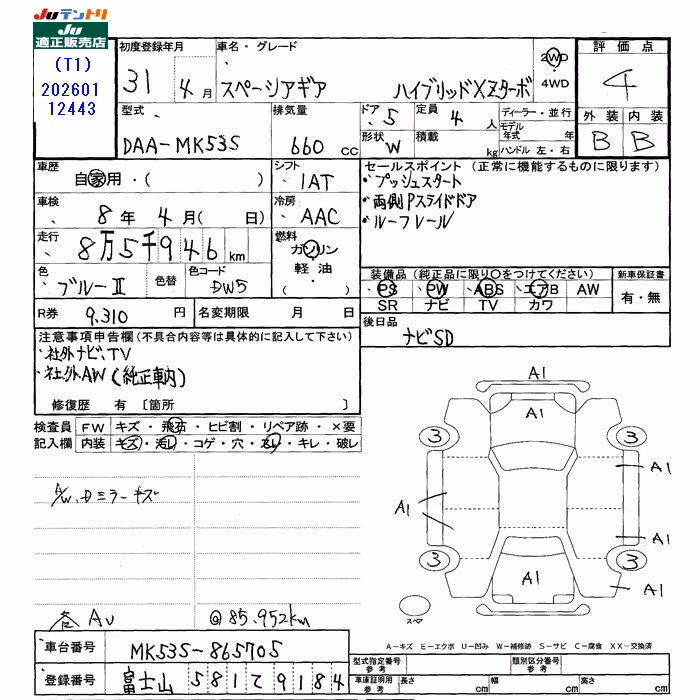 JUテントリ
JU
適正販売店
(T1)
202601
12443
初度登録年月
31 4月
車名・グレード
スペーシアギア ハイブリッドXZターボ
2WD
4WD
評価点
4
外装 内装
B B
型式
DAA-MK53S
排気量
660 cc
ドア 5
形状 W
定員 4 人
積載 kg
ディーラー・並行
モデル年式 年
ハンドル 左・右
車歴
自家用・( )
シフト
IAT
車検
8年 4月( 日)
冷房
AAC
走行
8万5千946km
燃料
ガソリン
軽油
・( )
色
ブルーII
色替
色コード
DW5
R券 9,310 円
名変期限 月 日
セールスポイント (正常に機能するものに限ります)
・プッシュスタート
・両側Pスライドドア
・ルーフレール
装備品 (純正品に限り○をつけてください)
PS PW ABS エアB AW
SR ナビ TV カワ
新車保証書
有・無
後日品
ナビSD
注意事項申告欄(不具合内容等は具体的に記入して下さい)
・社外ナビ、TV
・社外AW(純正車内)
修復歴 有 〔箇所 〕
検査員記入欄
FW キズ・飛石・ヒビ割・リペア跡・×要
内装 キズ・汚レ・コゲ・穴・スレ・キレ・破レ
A/W、Dミラーキズ
各AU
@85,952km
A1
A1
3 3
A1
A1
A1
3 3
A1
A1
スペア
A-キズ E-エクボ U-凹み W-補修跡 S-サビ C-腐食 XX-交換済
車台番号 MK53S-865705
登録番号 富士山 581て9184
型式指定番号 参考
類別区分番号 参考
車庫証明用 参考
長さ cm
幅 cm
高さ cm